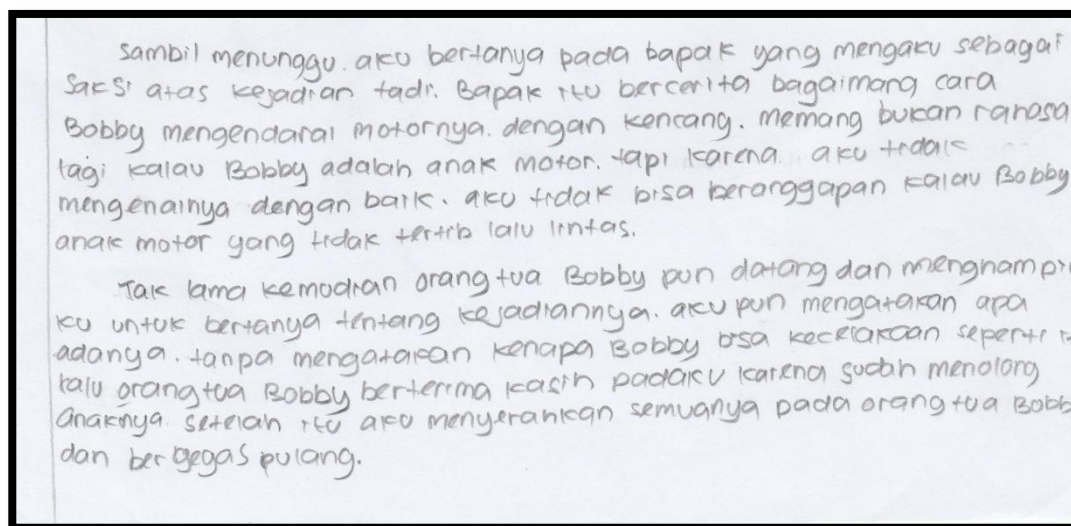 sambil menunggu. aku bertanya pada bapak yang mengaku sebagai
Saksi atas kejadian tadi. Bapak itu bercerita bagaimana cara
Bobby mengendarai motornya. dengan kencang. Memang bukan rahasa
lagi kalau Bobby adalah anak motor. tapi karena aku tidak
mengenalnya dengan baik. aku tidak bisa beranggapan kalau Bobby
anak motor yang tidak tertib lalu lintas.
Tak lama kemudian orang tua Bobby pun datang dan menghampi
ku untuk bertanya tentang kejadiannya. aku pun mengatakan apa
adanya. tanpa mengatakan kenapa Bobby bisa kecelakaan seperti
lalu orang tua Bobby berterima kasih padaku karena sudah menolong
anaknya. setelah itu aku menyerahkan semuanya pada orang tua Bobb
dan bergegas pulang.